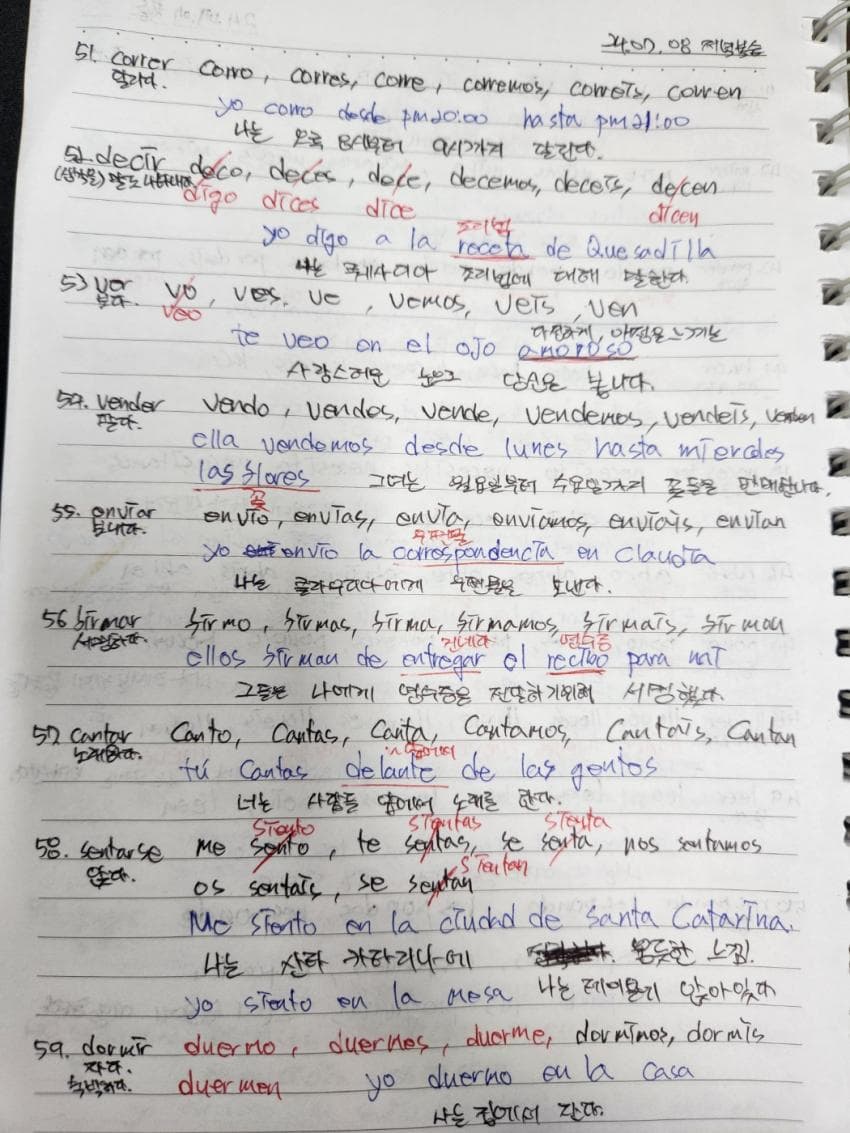 24.07.08 저녁복습
51. correr corro, corres, corre, corremos, correis, corren
달리다.
yo corro desde pm20:00 hasta pm21:00
나는 오후 8시부터 9시까지 달린다.
52. decir deco, deces, dece, decemos, deceis, decen
(생각을) 말로 나타내다.
digo dices dice dicen
조리법
yo digo a la receta de Quesadilla
나는 퀘사디아 조리법에 대해 말한다.
53 ver vo, ves, ve, vemos, veis, ven
보다. veo
다정하게, 애정을 느끼는
te veo en el ojo amoroso
사랑스러운 눈으로 당신을 봅니다.
54. vender vendo, vendes, vende, vendemos, vendeis, venden
팔다.
ella vendemos desde lunes hasta miercoles
las flores 그녀는 월요일부터 수요일까지 꽃들을 판매한니다.
꽃
55. enviar envio, envias, envia, enviamos, enviais, envian
보내다.
우편물
yo envio la correspondencia en Claudia
나는 클라우디아에게 우편물을 보낸다.
56 firmar firmo, firmas, firma, firmamos, firmais, firman
서명하다.
건네다 영수증
ellos firman de entregar el recibo para mi
그들은 나에게 영수증을 전달하기위해 서명했다.
57 cantar Canto, Cantas, Canta, Cantamos, Cantais, Cantan
노래하다.
~앞에서
tú Cantas delante de las gentes
너는 사람들 앞에서 노래를 한다.
siento sientas sienta
58. sentarse me sento, te sentas, se senta, nos sentamos
앉다.
sientan
os sentais, se sentan
Me siento en la ciudad de Santa Catarina.
나는 산타 카타리나에 뿌듯한 느낌.
yo siento en la mesa 나는 테이블에 앉아있다
59. dormir duermo, duermes, duerme, dormimos, dormis
자다.
숙박하다. duermen yo duermo en la casa
나는 집에서 잔다.